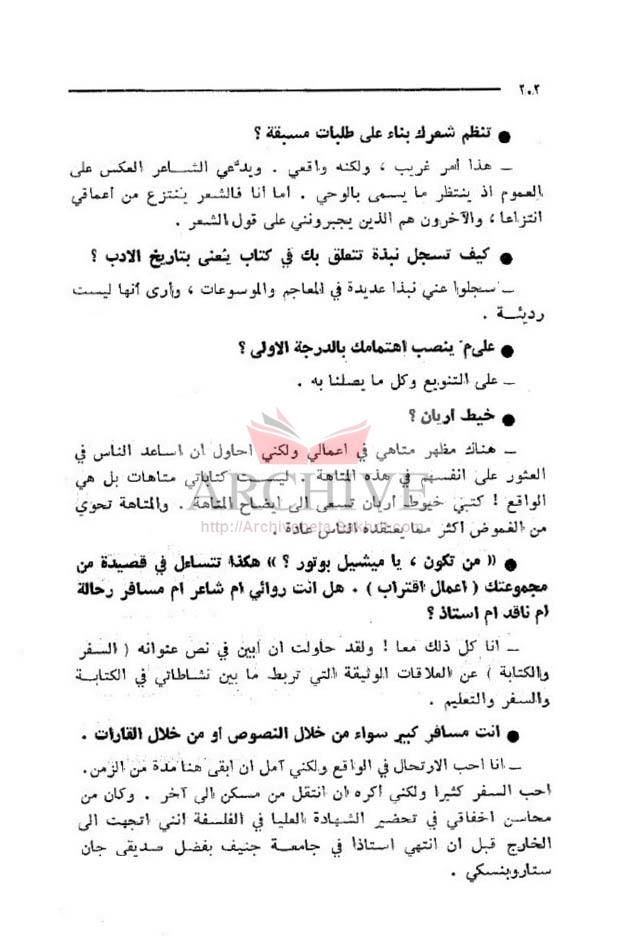 ٢٠٢
● تنظم شعرك بناء على طلبات مسبقة ؟
ـ هذا أمر غريب ، ولكنه واقعي . ويدّعي الشاعر العكس على
العموم اذ ينتظر ما يسمى بالوحي . اما انا فالشعر يُنتزع من أعماقي
انتزاعا ، والآخرون هم الذين يجبرونني على قول الشعر .
● كيف تسجل نبذة تتعلق بك في كتاب يُعنى بتاريخ الادب ؟
ـ سجلوا عني نبذا عديدة في المعاجم والموسوعات ، وأرى أنها ليست
رديئـة .
● على مَ ينصب اهتمامك بالدرجة الاولى ؟
ـ على التنويع وكل ما يصلنا به .
● خيط اريان ؟
ـ هناك مظهر متاهي في اعمالي ولكني احاول ان اساعد الناس في
العثور على انفسهم في هذه المتاهة . ليست كتاباتي متاهات بل هي
الواقع ! كتبي خيوط اريان تسعى الى ايضاح المتاهة . والمتاهة تحوي
من الغموض اكثر مما يعتقده الناس عادة .
ARCHIVE
http://Archivebeta.Sakhrit.com
● « من تكون ، يا ميشيل بوتور ؟ » هكذا تتساءل في قصيدة من
مجموعتك ( اعمال اقتراب ) . هل انت روائي ام شاعر ام مسافر رحالة
ام ناقد ام استاذ ؟
ـ انا كل ذلك معا ! ولقد حاولت ان أبين في نص عنوانه ( السفر
والكتابة ) عن العلاقات الوثيقة التي تربط ما بين نشاطاتي في الكتابـة
والسفر والتعليم .
● انت مسافر كبير سواء من خلال النصوص او من خلال القارات .
ـ انا احب الارتحال في الواقع ولكني آمل ان ابقى هنا مدة من الزمن.
احب السفر كثيرا ولكني اكره ان انتقل من مسكن الى آخر . وكان من
محاسن اخفاقي في تحضير الشهادة العليا في الفلسفة انني اتجهت الى
الخارج قبل ان انتهي استاذا في جامعة جنيف بفضل صديقي جان
ستاروبنسكي .